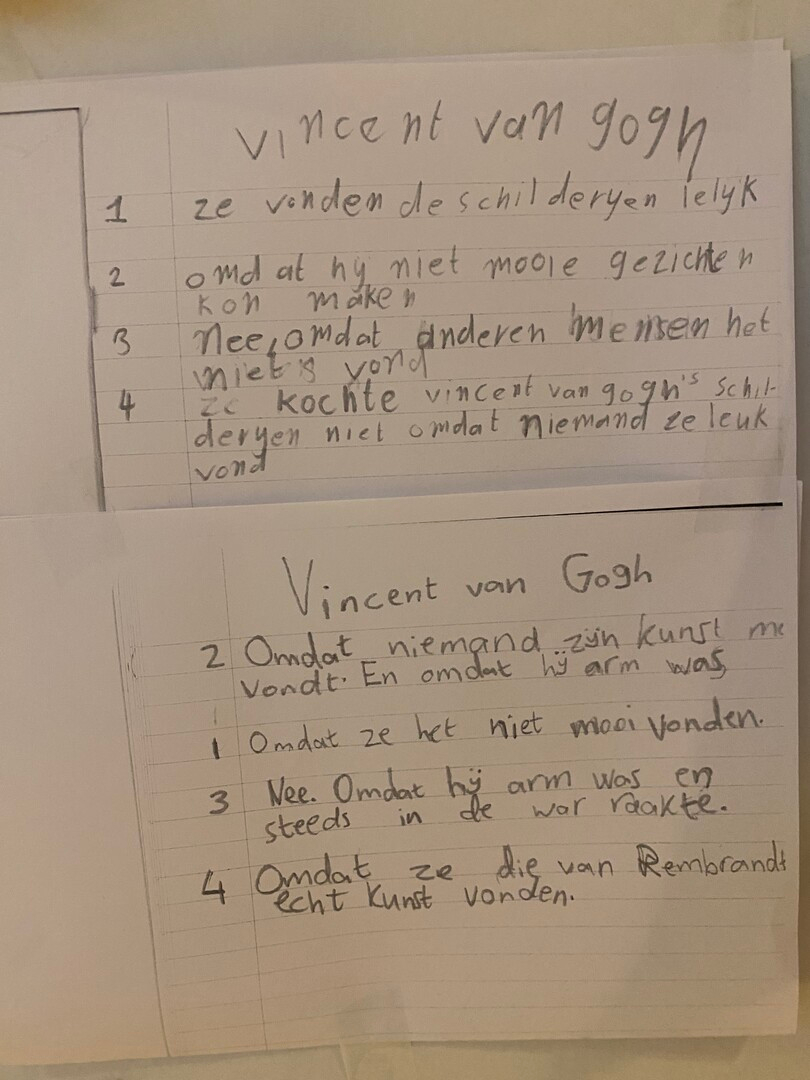 vincent van gogh
1 ze vonden de schilderyen lelyk
2 omdat hy niet mooie gezichten
kon maken
3 nee, omdat anderen mensen het
niet's vond
4 ze kochte vincent van gogh's schil-
deryen niet omdat niemand ze leuk
vond
Vincent van Gogh
2 Omdat niemand zijn kunst
vondt. En omdat hij arm was,
1 Omdat ze het niet mooi vonden.
3 Nee. Omdat hij arm was en
steeds in de war raakte.
4 Omdat ze die van Rembrandt
echt kunst vonden.